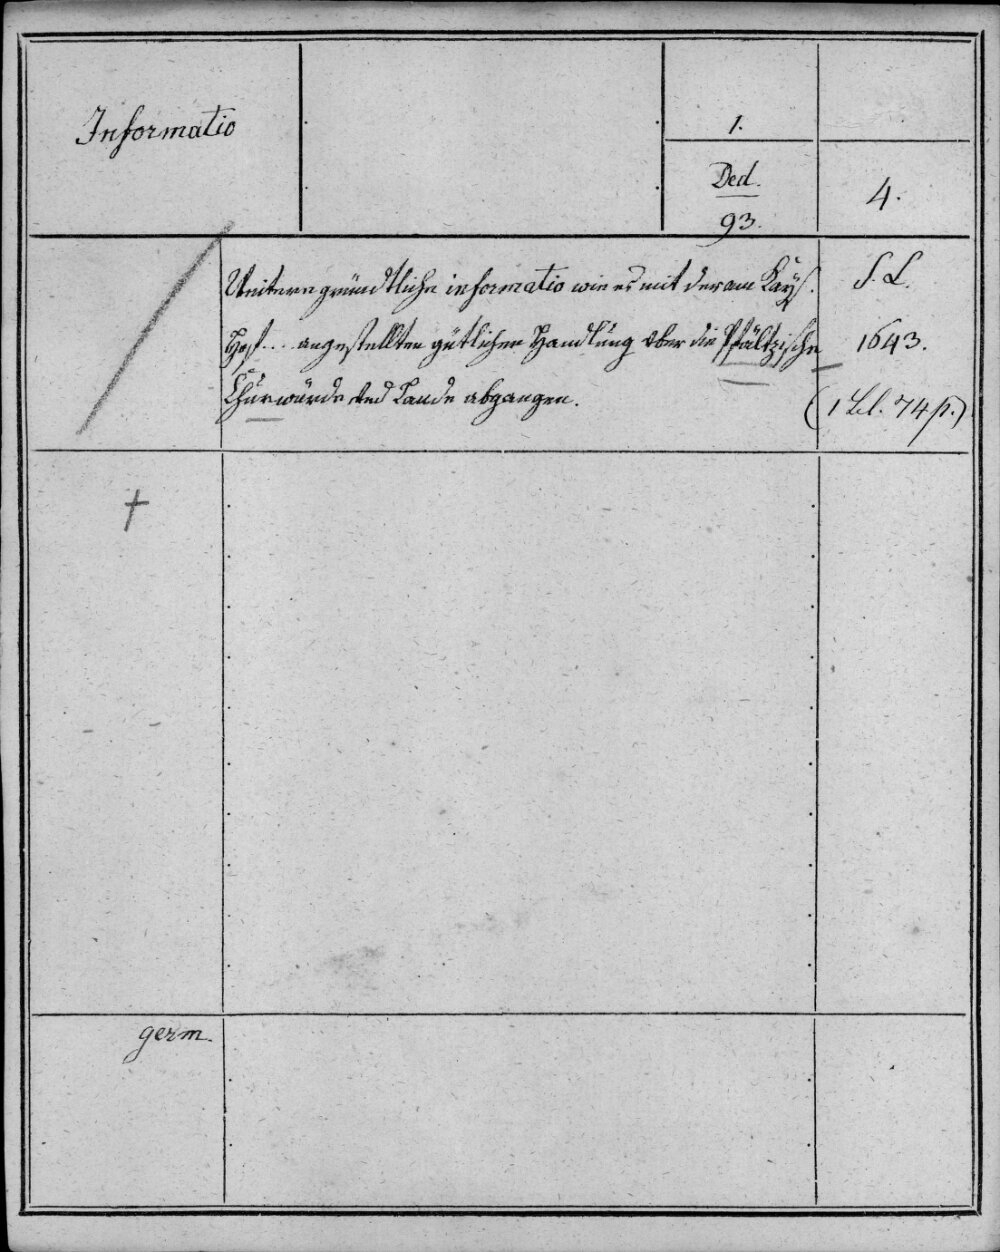 Informatio
1.
Ded.
93.
4.
Weitere gründtliche informatio wie es mit der am Kays.
Hof .... angestellten gütlichen Handlung über die Pfältzische
Churwürde und Lande abgangen.
S. L.
1643.
(1 Bl. 74 p.)
†
germ.